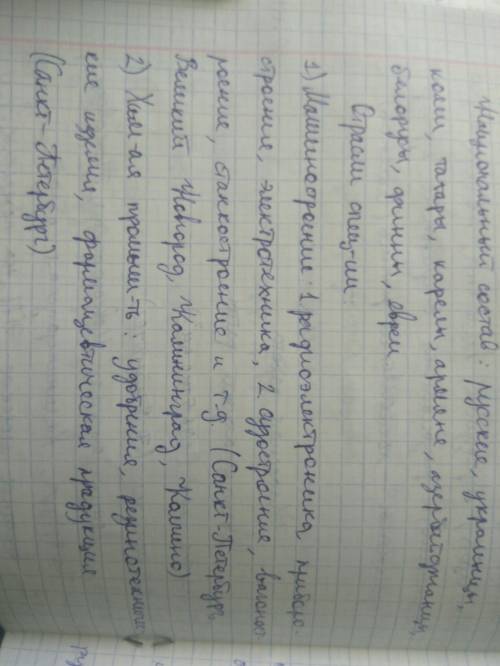 Национальный состав: русские, украинцы,
коми, татары, карелы, армяне, азербайджанцы,
белорусы, финны, евреи.
Отрасли спец-ии
1) Машиностроение: 1 радиоэлектроника, приборо-
строение, электротехника, 2 судостроение, вагонос-
роение, станкостроение и т.д (Санкт-Петербург,
Великий Новгород, Калининград, Колпино)
2) Хим-ая промышл-ть: удобрения, резинотехничес-
кие изделия, фармацевтическая продукция
(Санкт-Петербург)